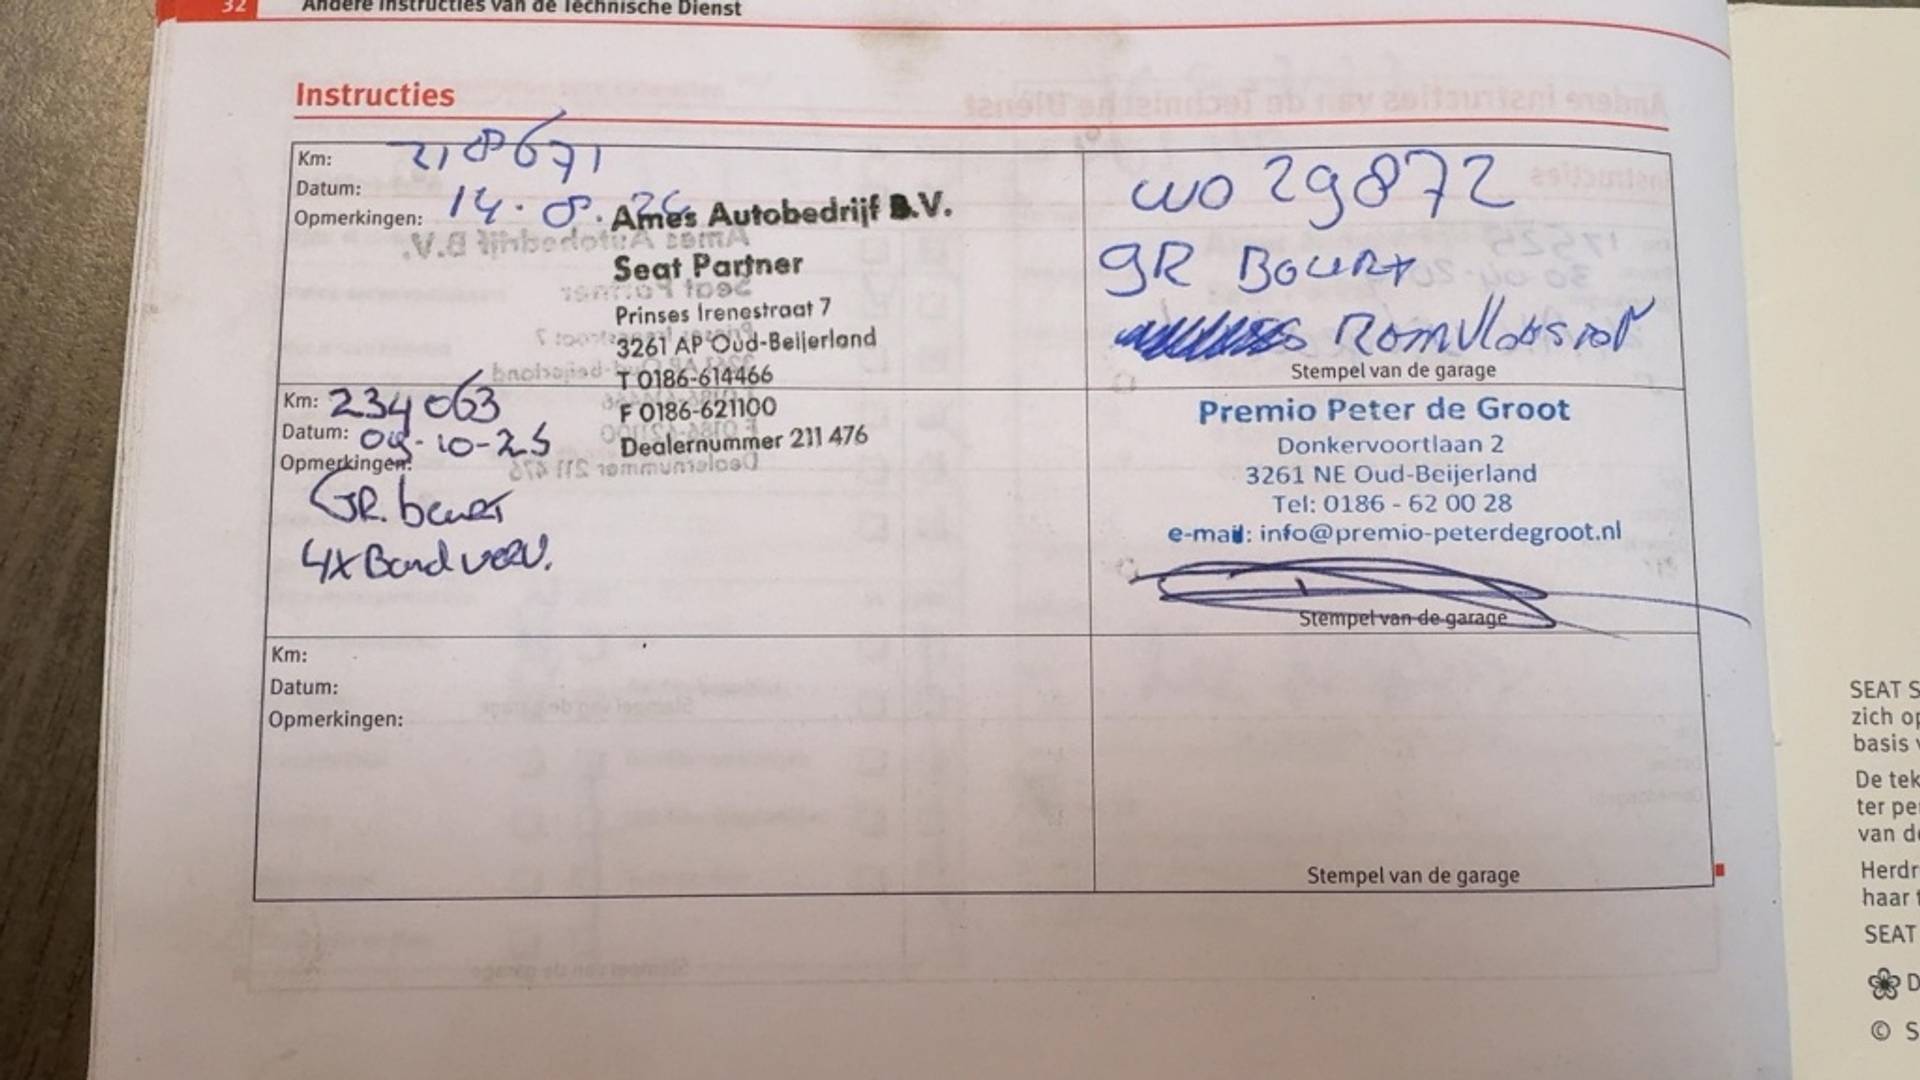 32 Andere Instructies van de Technische Dienst
Instructies
Km: 218671
Datum: 14-8-24
Opmerkingen:
Ames Autobedrijf B.V.
Seat Partner
Prinses Irenestraat 7
3261 AP Oud-Beijerland
T 0186-614466
F 0186-621100
Dealernummer 211 476
wo 29872
gR Beurt
Remvloeistof
Stempel van de garage
Km: 234063
Datum: 09-10-25
Opmerkingen:
GR. beurt
4x Band verv.
Premio Peter de Groot
Donkervoortlaan 2
3261 NE Oud-Beijerland
Tel: 0186 - 62 00 28
e-mail: info@premio-peterdegroot.nl
Stempel van de garage
Km:
Datum:
Opmerkingen:
Stempel van de garage
SEAT S
zich op
basis v
De tek
ter per
van de
Herdr
haar t
SEAT
D
© S